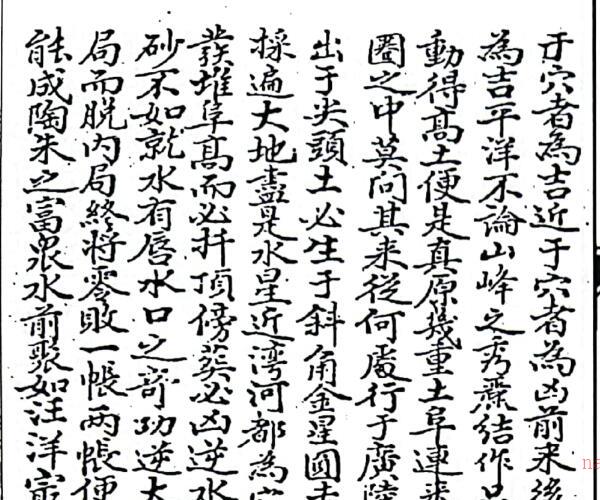 于穴者為吉近于穴者為凶前来後
為吉平洋不論山峰之秀麗結作只
動得高土便是真原幾重土阜連来
圈之中莫问其来従何處行于廣陵
出于尖頭土必生于斜角金星圓去
採遍大地盡是水星近湾河都為
發堆阜高而必扦頂傍葵必凶逆水
砂不如就水有唇水口之竒功逆大
局而脱内局終将零敗一帳两帳便
能成陶朱之富衆水前聚如汪洋